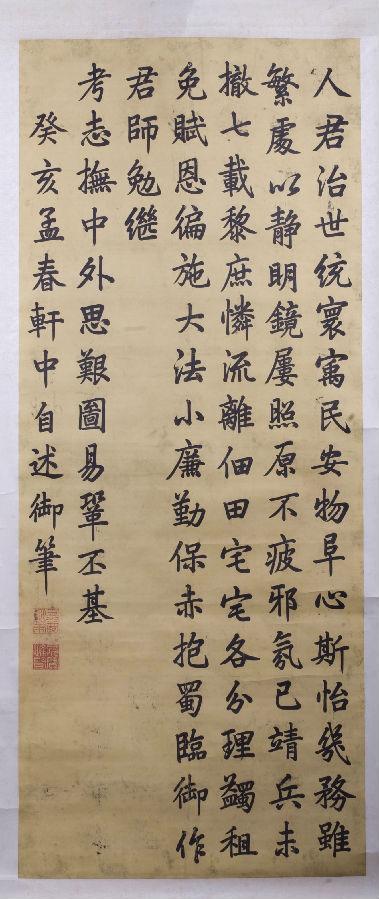 人君治世統寰寓民安物阜心斯怡幾務雖
繁處以靜明鏡屢照原不疲邪氛已靖兵未
撤七載黎庶憐流離佃田宅宅各分理蠲租
免賦恩徧施大法小廉勤保赤抱蜀臨御作
君師勉繼
考志撫中外思艱圖易鞏丕基
癸亥孟春軒中自述御筆